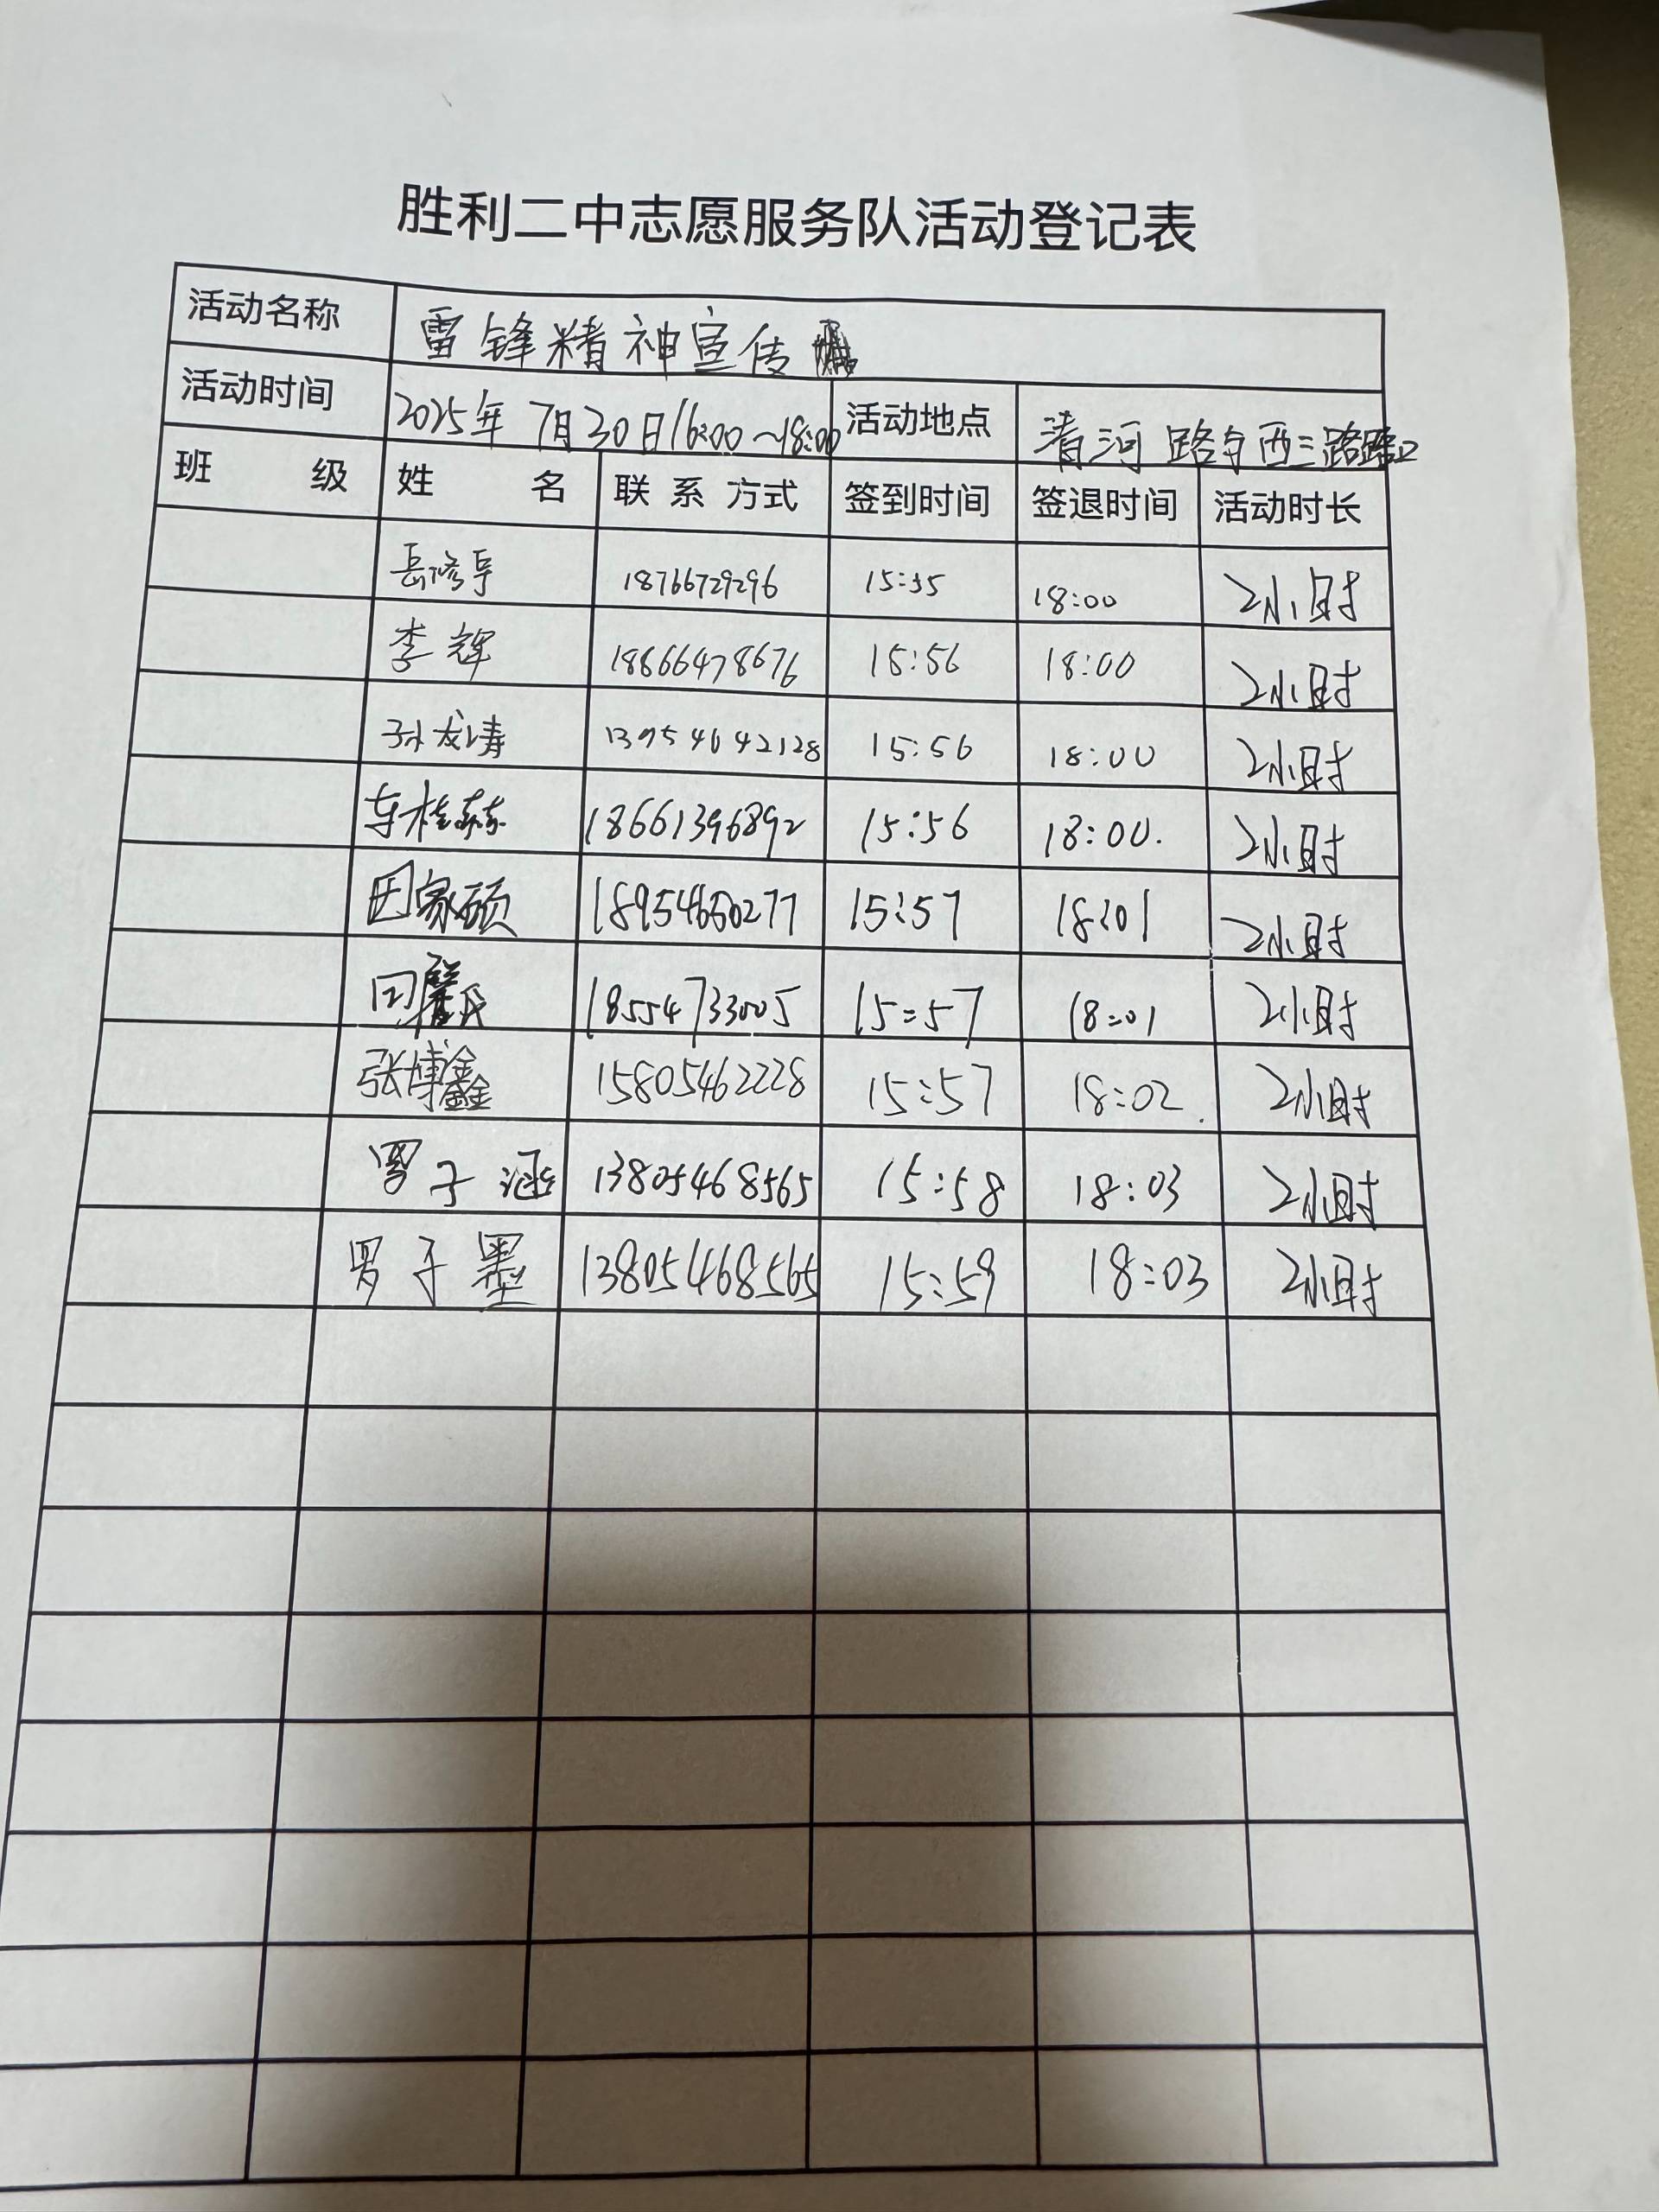 胜利二中志愿服务队活动登记表
活动名称 雷锋精神宣传
活动时间 2025年7月30日16:00~18:00 活动地点 清河路与西三路路口
班级 姓名 联系方式 签到时间 签退时间 活动时长
岳修亭 18766729296 15:55 18:00 2小时
李辉 18866478676 15:56 18:00 2小时
孙龙涛 13954642128 15:56 18:00 2小时
车桂赫 18661396892 15:56 18:00. 2小时
田家硕 18954650277 15:57 18:01 2小时
田 18554733005 15:57 18:01 2小时
张博鑫 15805462228 15:57 18:02. 2小时
罗子涵 13805468565 15:58 18:03 2小时
罗子墨 13805468565 15:59 18:03 2小时